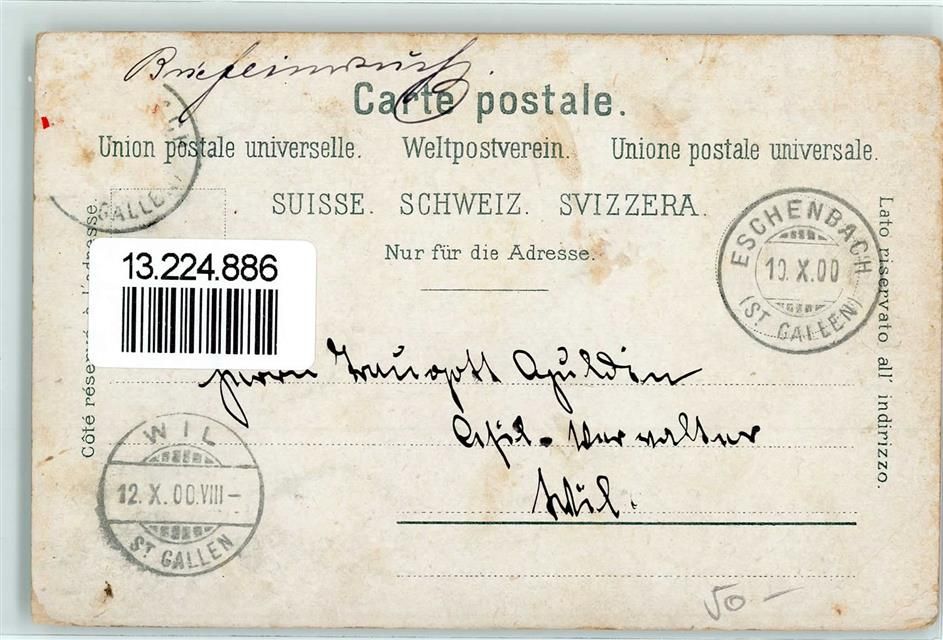 Briefeinwurf
Carte postale.
Union postale universelle. Weltpostverein. Unione postale universale.
SUISSE. SCHWEIZ. SVIZZERA.
Nur für die Adresse.
Côté réservé à l'adresse.
Lato riservato all' indirizzo.
GALLEN
13.224.886
ESCHENBACH
10.X.00
(ST GALLEN)
Herrn Traugott Guldin
Verwalter
Wil.
WIL
12.X.00.VIII-
ST GALLEN
50 -